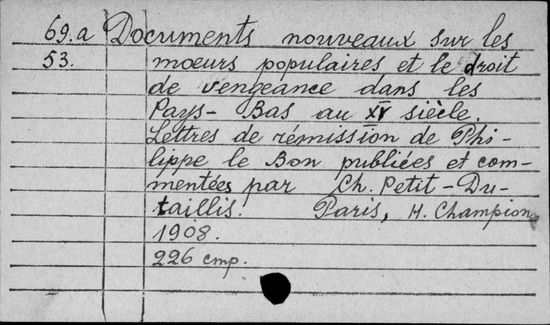 69.a Documents nouveaux sur les
53. moeurs populaires et le droit
de vengeance dans les
Pays-Bas au XV siècle.
Lettres de rémission de Phi-
lippe le Bon publiées et com-
mentées par Ch. Petit-Du-
taillis. Paris, H. Champion
1908.
226 стр.